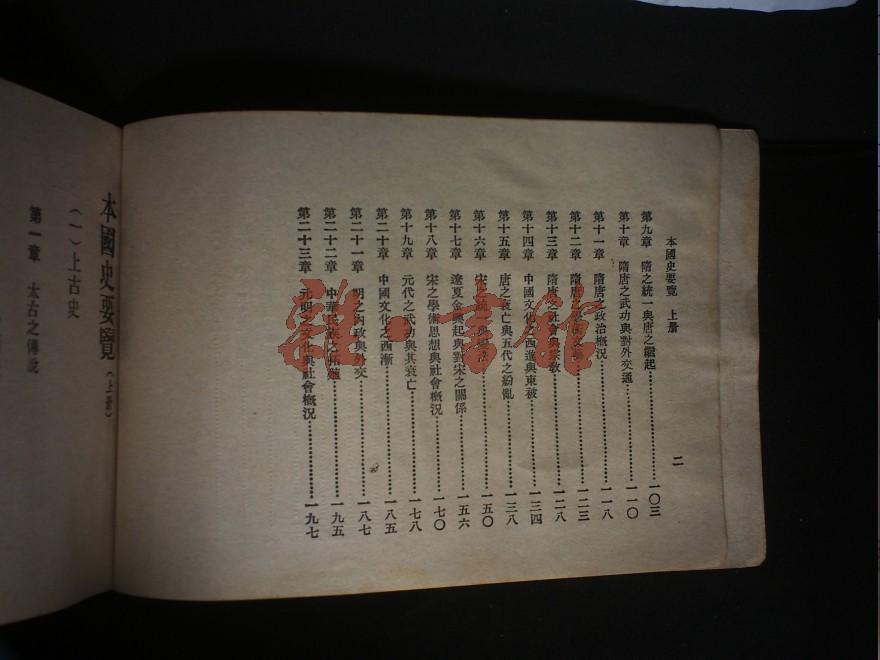 本國史要覽　上册
二
第九章　隋之統一與唐之繼起…………一〇三
第十章　隋唐之武功與對外交通…………一一〇
第十一章　隋唐之政治概況…………一一八
第十二章　隋唐之學術文學…………一二三
第十三章　隋唐之社會與宗教…………一二八
第十四章　中國文化之西進與東被…………一三四
第十五章　唐之衰亡與五代之紛亂…………一三八
第十六章　宋之統一與變法…………一五〇
第十七章　遼夏金興起與對宋之關係…………一五六
第十八章　宋之學術思想與社會概況…………一七〇
第十九章　元代之武功與其衰亡…………一七八
第二十章　中國文化之西漸…………一八五
第二十一章　明之內政與外交…………一八七
第二十二章　中華民族之拓殖…………一九五
第二十三章　元明之文化與社會概況…………一九七
本國史要覽（上册）
（一）上古史
第一章　太古之傳說
雜·書館